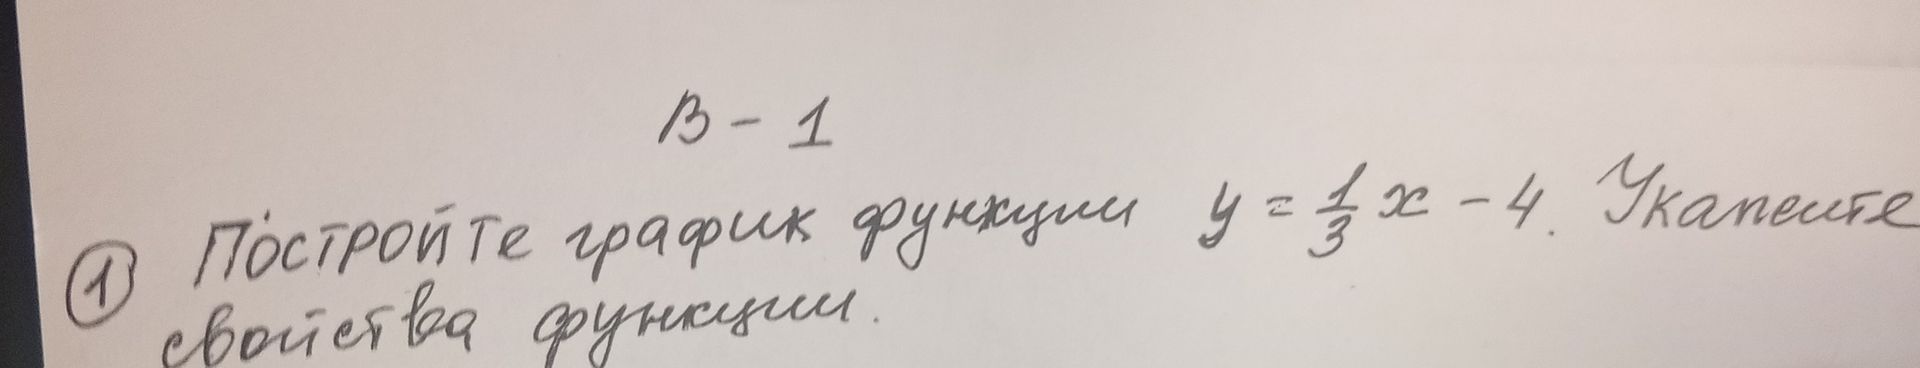 В - 1
① Постройте график функции y = 1/3 x - 4. Укажите
свойства функции.